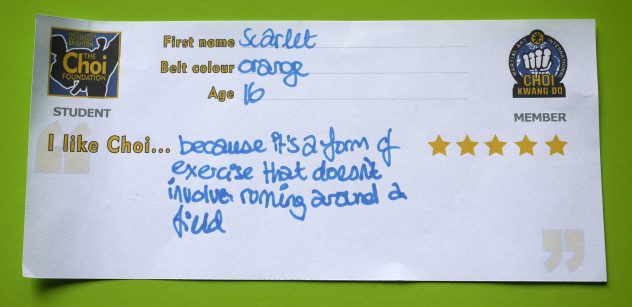 The
Choi
FOUNDATION
STUDENT
First name Scarlet
Belt colour orange
Age 16
MARTIAL ART INTERNATIONAL
CHOI
KWANG DO
MEMBER
I like Choi... because it's a form of
exercise that doesn't
involve running around a
field